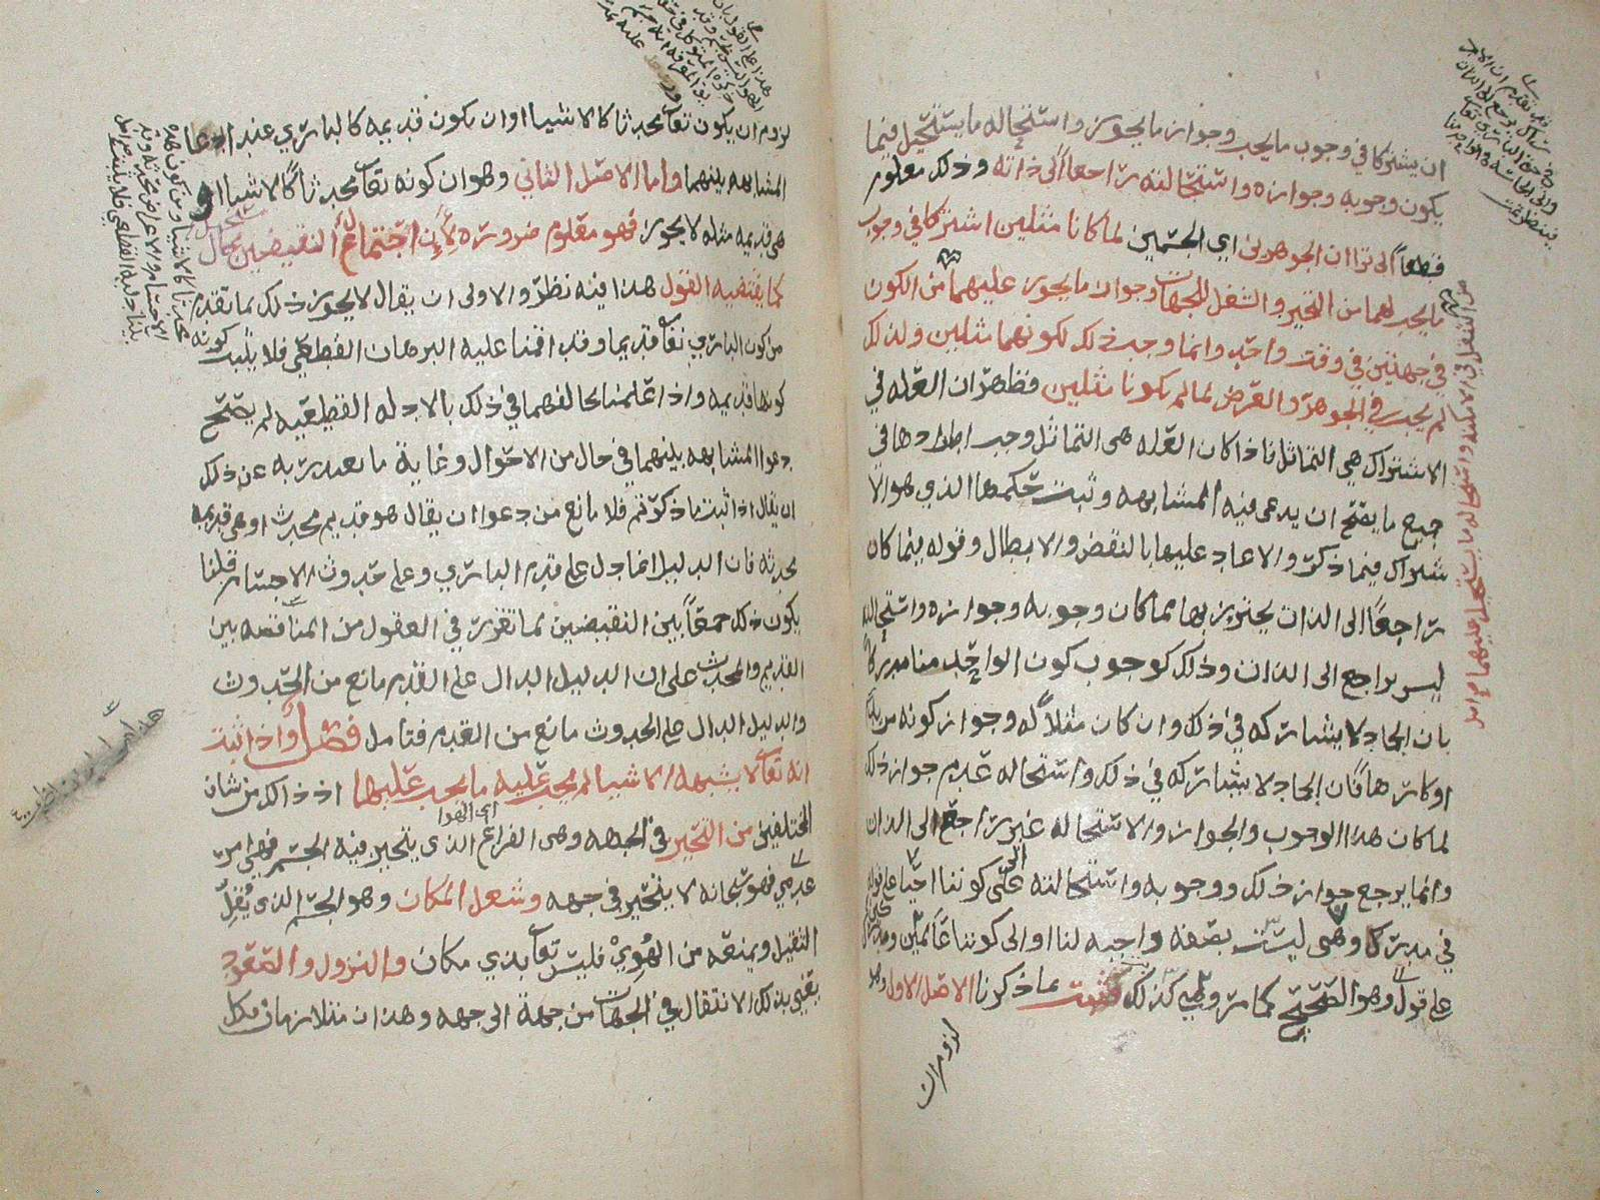 ان يشتركا في وجوب ما يجب وجواز ما يجوز واستحاله ما يستحيل فيما
يكون وجوبه وجوازه واستحالته راجعاً الى ذاته وذلك معلوم
قطعاً الى ترا ان الجوهرين اي الجسمين لما كانا مثلين اشتركا في وجوب
ما يجب لهما من التحيز والشغل للجهات وجواز ما يجوز عليهما من الكون
في جهتين في وقت واحد وانما وجب ذلك لكونهما مثلين ولذلك
لم يجب في الجوهر والعرض لما لم يكونا مثلين فظاهر ان العله في
الاشتراك هي التماثل فاذا كان العله هي التماثل وجب اطرادها في
جميع ما يصح ان يدعى فيه المشابهه وثبت حكمها الذي هو الا
شتراك فيما ذكر والا عاد عليها بالنقض والابطال وقوله فيما كان
راجعاً الى الذات يحترز بها مما كان وجوبه وجوازه واستحالته
ليس براجع الى الذات وذلك كوجوب كون الواحد منا مدركاً
بان الجماد لا يشاركه في ذلك وان كان مثلاً له وجواز كونه مريداً
او كارهاً فان الجماد لا يشاركه في ذلك واستحاله عدم جواز ذلك
لما كان هذا الوجوب والجواز والاستحاله غير راجع الى الذات
وانما يرجع جواز ذلك ووجوبه واستحالته الى كوننا احيا على قوله
في مدركا وهي ليست بصفه واجبه لنا او الى كوننا عالمين
على قول وهو الصحيح كما مر كذلك فثبت بما ذكرنا الاصل الاول وهو
لزوم ان
من التنقل في الامكنه واستحاله ما يستحيل عليهما
لزوم ان يكون تعالى محدثا كالاشيا او ان يكون قديمه كالباري عند ادعا
المشابهه بينهما واما الاصل الثاني وهو ان كونه تعالى محدثاً كالاشيا او
هي قديمه مثله لا يجوز فهو معلوم ضروره لان اجتماع النقيضين محال
كما يقتضيه القول هذا فيه نظر والاولى ان يقال لا يجوز ذلك بما تقدم
من كون الباري تعالى قديما وقد اقمنا عليه البرهان القطعي فلا يثبت كونه
كونها قديمه واذا علمنا تخالفهما في ذلك بالادله القطعيه لم يصح
دعوا المشابهه بينهما في حال من الاحوال وغاية ما يعبر به عن ذلك
ان يقال اذا ثبت ما ذكرتم فلا مانع من دعوا ان يقال هو قديم محدث او هي قديمه
محدثه فان الدليل انما دل على قدم الباري وعلى حدوث الاجسام قلنا
يكون ذلك جمعاً بين النقيضين لما تقرر في العقول من المناقضه بين
القديم والمحدث على ان الدليل الدال على القدم مانع من الحدوث
والدليل الدال على الحدوث مانع من القدم فتامل فصل واذا ثبت
انه تعالى لا يشبهه الاشيا لم يجب عليه ما يجب عليها اذ ذاك من شان
المختلفين من التحيز في الجهه وهي الفراغ الذي يتحيز فيه الجسم فهي امر
اي الهوا
عدمي فهو سبحانه لا يتحيز في جهه وشغل المكان وهو الجسم الذي يُقِلّ
الثقيل ويمنعه من الهُوِيّ فليس تعالى بذي مكان والنزول والصعود
يعني بذلك الانتقال في الجهات من جهة الى جهه وهذان متلازمان فكل